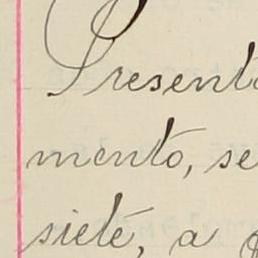 Present
mento, se
siete, a